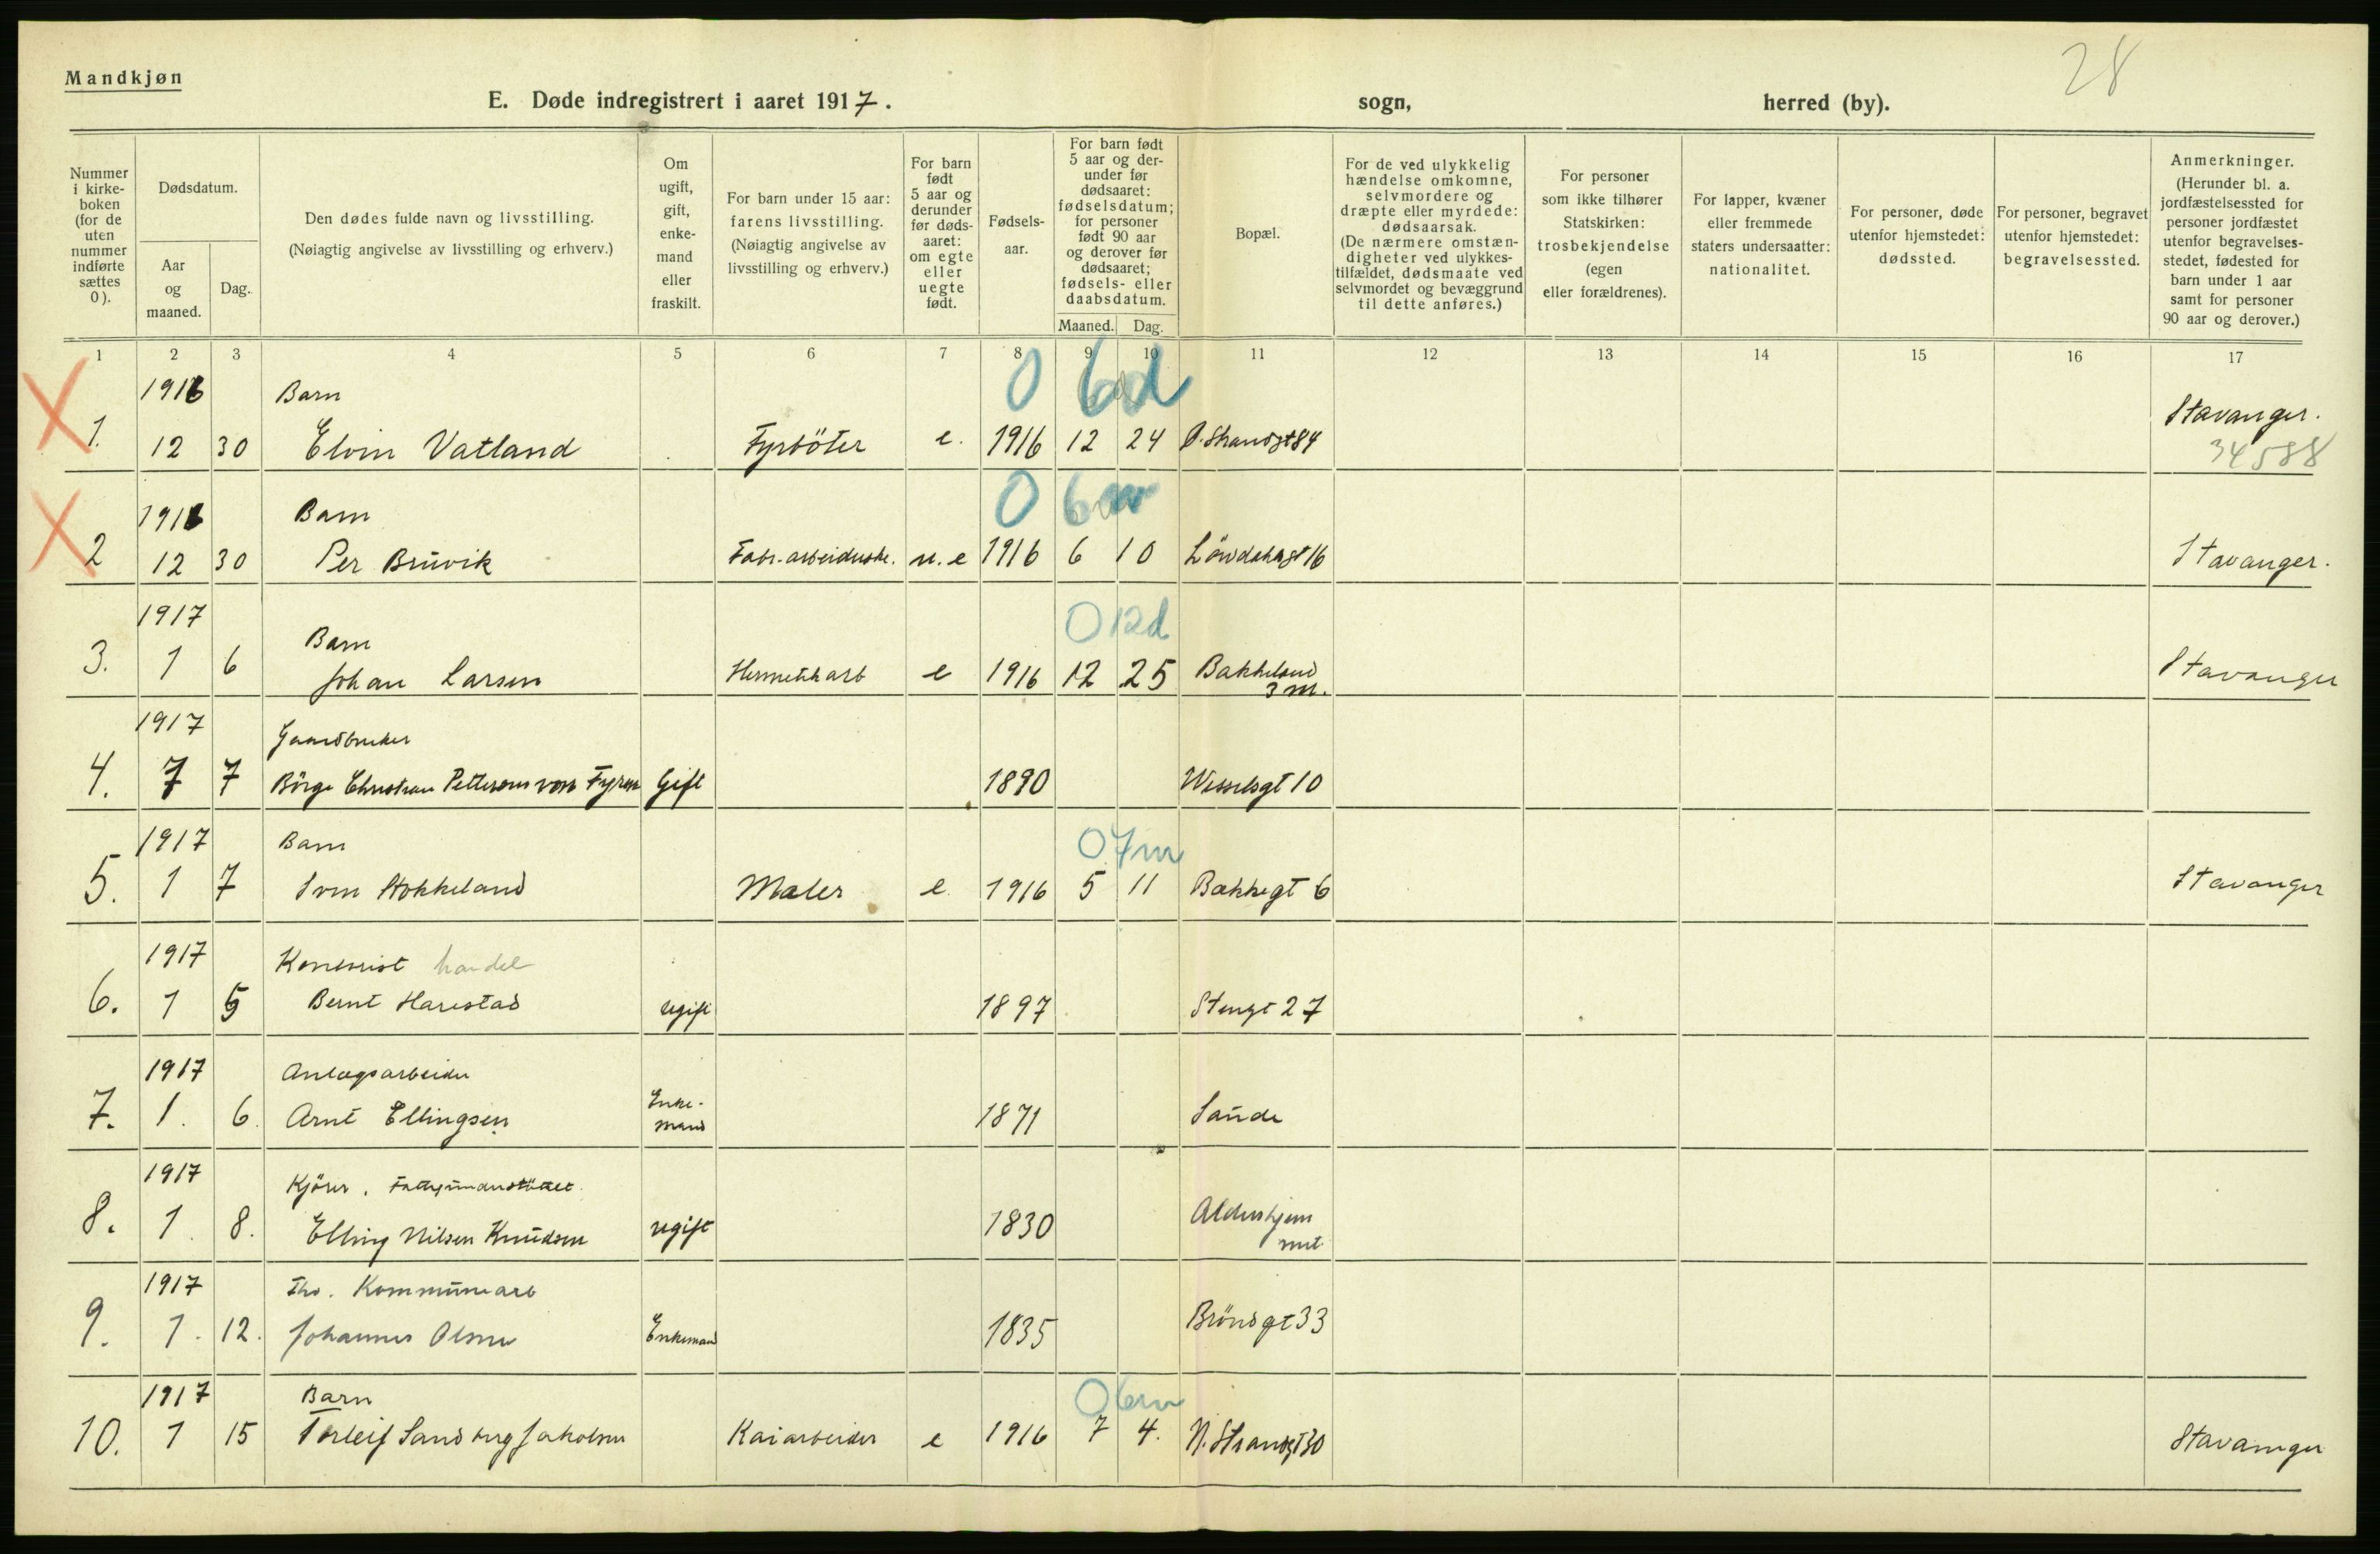 Mandkjøn
28
E. Døde indregistrert i aaret 1917.
sogn,
herred (by).
Nummer
i kirke-
boken
(for de
uten
nummer
indførte
sættes
0).
Dødsdatum.
Aar
og
maaned.
Dag.
Den dødes fulde navn og livsstilling.
(Nøiagtig angivelse av livsstilling og erhverv.)
Om
ugift,
gift,
enke-
mand
eller
fraskilt.
For barn under 15 aar:
farens livsstilling.
(Nøiagtig angivelse av
livsstilling og erhverv.)
For barn
født
5 aar og
derunder
før døds-
aaret:
om egte
eller
uegte
født.
Fødsels-
aar.
For barn født
5 aar og der-
under før
dødsaaret:
fødselsdatum;
for personer
født 90 aar
og derover før
dødsaaret;
fødsels- eller
daabsdatum.
Maaned. Dag.
Bopæl.
For de ved ulykkelig
hændelse omkomne,
selvmordere og
dræpte eller myrdede:
dødsaarsak.
(De nærmere omstæn-
digheter ved ulykkes-
tilfældet, dødsmaate ved
selvmordet og bevæggrund
til dette anføres.)
For personer
som ikke tilhører
Statskirken:
trosbekjendelse
(egen
eller forældrenes).
For lapper, kvæner
eller fremmede
staters undersaatter:
nationalitet.
For personer, døde
utenfor hjemstedet:
dødssted.
For personer, begravet
utenfor hjemstedet:
begravelsessted.
Anmerkninger.
(Herunder bl. a.
jordfæstelsessted for
personer jordfæstet
utenfor begravelses-
stedet, fødested for
barn under 1 aar
samt for personer
90 aar og derover.)
1 2 3 4 5 6 7 8 9 10 11 12 13 14 15 16 17
1916 Barn 0 6d
1. 12 30 Elvin Vatland Fyrböter e. 1916 12 24 Ø. Strandgt 84 Stavanger.
34588
1916 Barn 0 6m
2 12 30 Per Bruvik Fabr.arbeiderske. u.e 1916 6 10 16 Stavanger.
1917 Barn 0 12d
3. 1 6 Johan Larsen Hermetikarb e 1916 12 25 Bakkeland 3 m. Stavanger
1917 Gaardbruker
4. 7 7 Börge Christian Pettersen von Fyren Gift 1890 Wesselsgt 10
1917 Barn 0 7m
5. 1 7 Sven Stokkeland Maler e 1916 5 11 Bakkegt 6 Stavanger
1917 Kontorist handel
6. 1 5 Bernt Harestad ugift 1897 Stengt 27
1917 Anlægsarbeider
7. 1. 6. Arnt Ellingsen Enke-
mand 1871 Sande
1917 Kjörer. Fattigunderstöttet.
8. 1. 8. Elling Nilsen Knudsen ugift 1830 Aldershjem
met
1917 Fhv. Kommunearb
9. 1. 12. Johannes Olsen Enkemand 1835 Bröndgt 33
1917 Barn 0 6m
10. 1 15 Torleif Sandberg Jakobsen Kaiarbeider e 1916 7 4. N. Strandgt 30 Stavanger